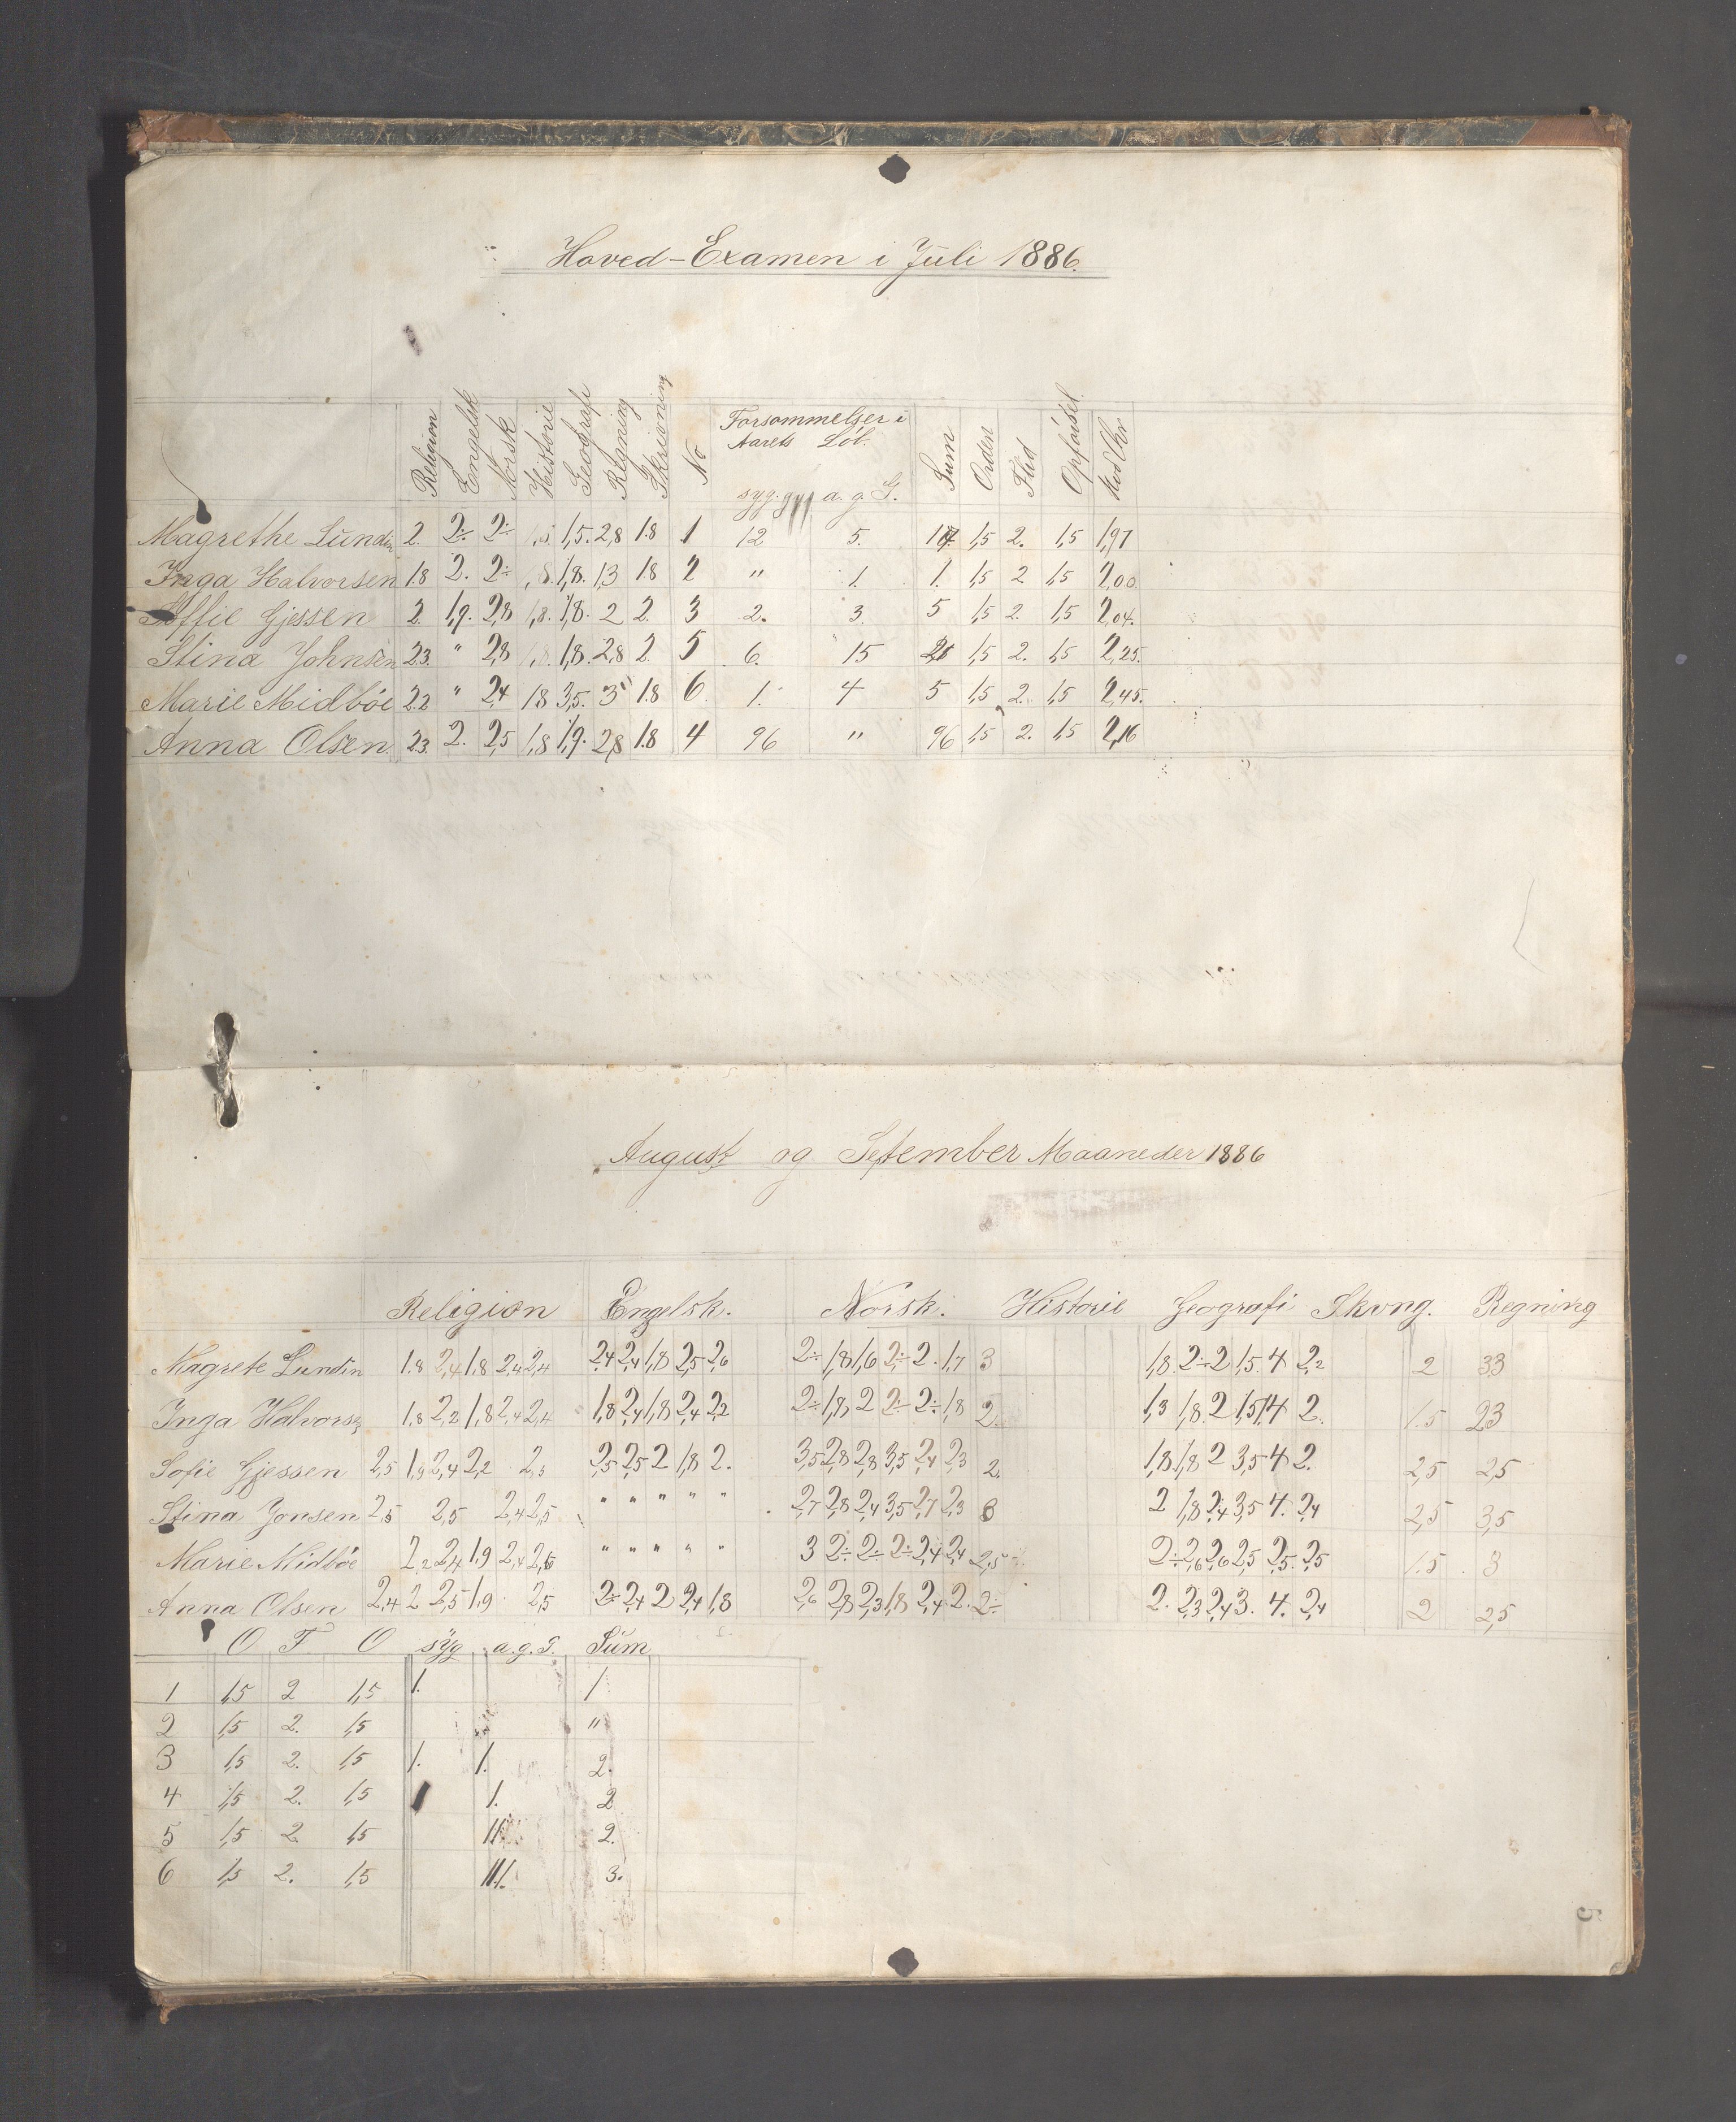 Hoved-Examen i Juli 1886.
Religion Engelsk Norsk Historie Geografi Regning Skrivning No Forsømmelser i Aarets Løb. Sum Orden Flid Opførsel
syg. a. g. G.
Magrethe Lundin 2. 2÷ 2÷ 1,8. 1,5. 2,8 1.8 1 12 5. 17. 1,5 2. 1,5 1,97
Inga Halvorsen 1.8 2. 2÷ 1,8. 1,8. 1,3 1.8 2 " 1. 1. 1,5 2 1,5 2,00.
Soffie Gjessen 2. 1,9. 2,8 1,8. 1,8. 2 2. 3 2. 3. 5 1,5 2. 1,5 2,04.
Stina Johnsen 2.3. " 2,8 1,8. 1,8. 2,8 2. 5 6. 15 21 1,5 2. 1,5 2,25.
Marie Midbøe 2.2 " 2,4 1.8 3,5. 3 1.8 6 1. 4 5 1,5 2. 1,5 2,45.
Anna Olsen 2.3. 2. 2,5 1,8 1,9. 2,8 1.8 4 96 " 96 1,5 2. 1,5 2,16
August og September Maaneder 1886
Religion Engelsk. Norsk. Historie Geografi Skvng. Regning
Magrete Lundin 1.8 2,4 1.8 2,4 2,4 2,4 2,4 1,8 2,5 2,6 2÷ 1,8 1,6 2÷ 2. 1,7 3 1,8. 2÷ 2 1,5. 4 2,2 2 3,3
Inga Halvorsn 1.8 2,2 1,8 2,4 2,4 1,8 2,4 1,8 2,4 2,2 2÷ 1,8 2 2÷ 2÷ 1,8 2. 1,3 1,8. 2 1,5 4 2. 1.5 2,3
Sofie Gjessen 2,5 1,9 2,4 2,2 2,5 2,5 2,5 2 1,8 2. 3,5 2,8 2,8 3,5 2,4 2,3 2. 1,8. 1,8 2 3,5 4 2. 2,5 2,5
Stina Jonsen 2,5 2,5 2,4 2,5 " " " " " 2,7 2,8 2,4 3,5 2,7 2,3 3 2 1,8 2,4 3,5 4. 2,4 2,5 3,5
Marie Midbøe 2,2 2,4 1.9 2,4 2,5 " " " " " 3 2÷ 2÷ 2÷ 2,4 2,4 2,5 2÷ 2,6 2,6 2,5 2,5. 2,5 1.5 3
Anna Olsen 2,4 2 2,5 1,9 2,5 2÷ 2,4 2 2,4 1,8 2,6 2,8 2,3 1,8 2,4 2. 2÷ 2. 2,3 2,4 3. 4. 2,4 2 2,5
O F. O syg a.g.G. Sum
1 1,5 2 1,5 1. 1
2 1,5 2. 1,5 "
3 1,5 2. 1,5 1. 1. 2.
4 1,5 2. 1,5 1 1. 2
5 1,5 2 1,5 11. 2.
6 1,5 2. 1,5 111. 3.
5